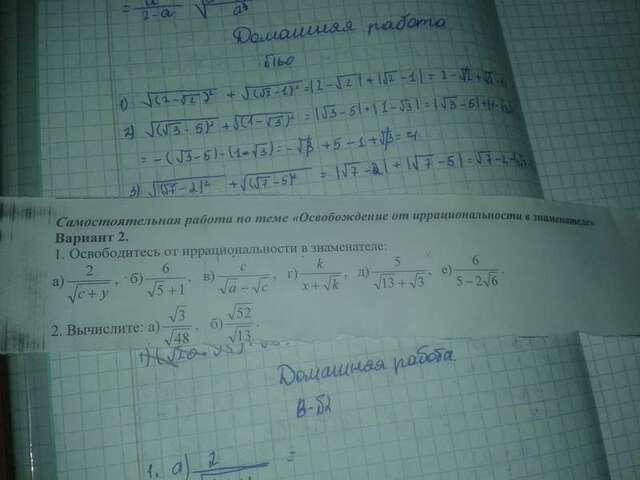 2-a
a³
Домашняя работа
1) √(2-√2)² + √(√2-1)² = |2-√2| + |√2-1| = 2-√2+√2
2) √(√3-5)² + √(1-√3)² = |√3-5| + |1-√3| = |√3-5| +
= -(√3-5)-(1-√3) = -√3+5-1+√3 = 4
3) √(√7-2)² + √(√7-5)² = |√7-2| + |√7-5| = √7-2
Самостоятельная работа по теме «Освобождение от иррациональности в знаменателе»
Вариант 2.
1. Освободитесь от иррациональности в знаменателе:
а) 2/√(c+y), б) 6/(√5+1), в) c/(√a-√c), г) k/(x+√k), д) 5/(√13+√3), е) 6/(5-2√6).
2. Вычислите: а) √3/√48, б) √52/√13.
Домашняя работа
В-Б2
1. а) 2 =